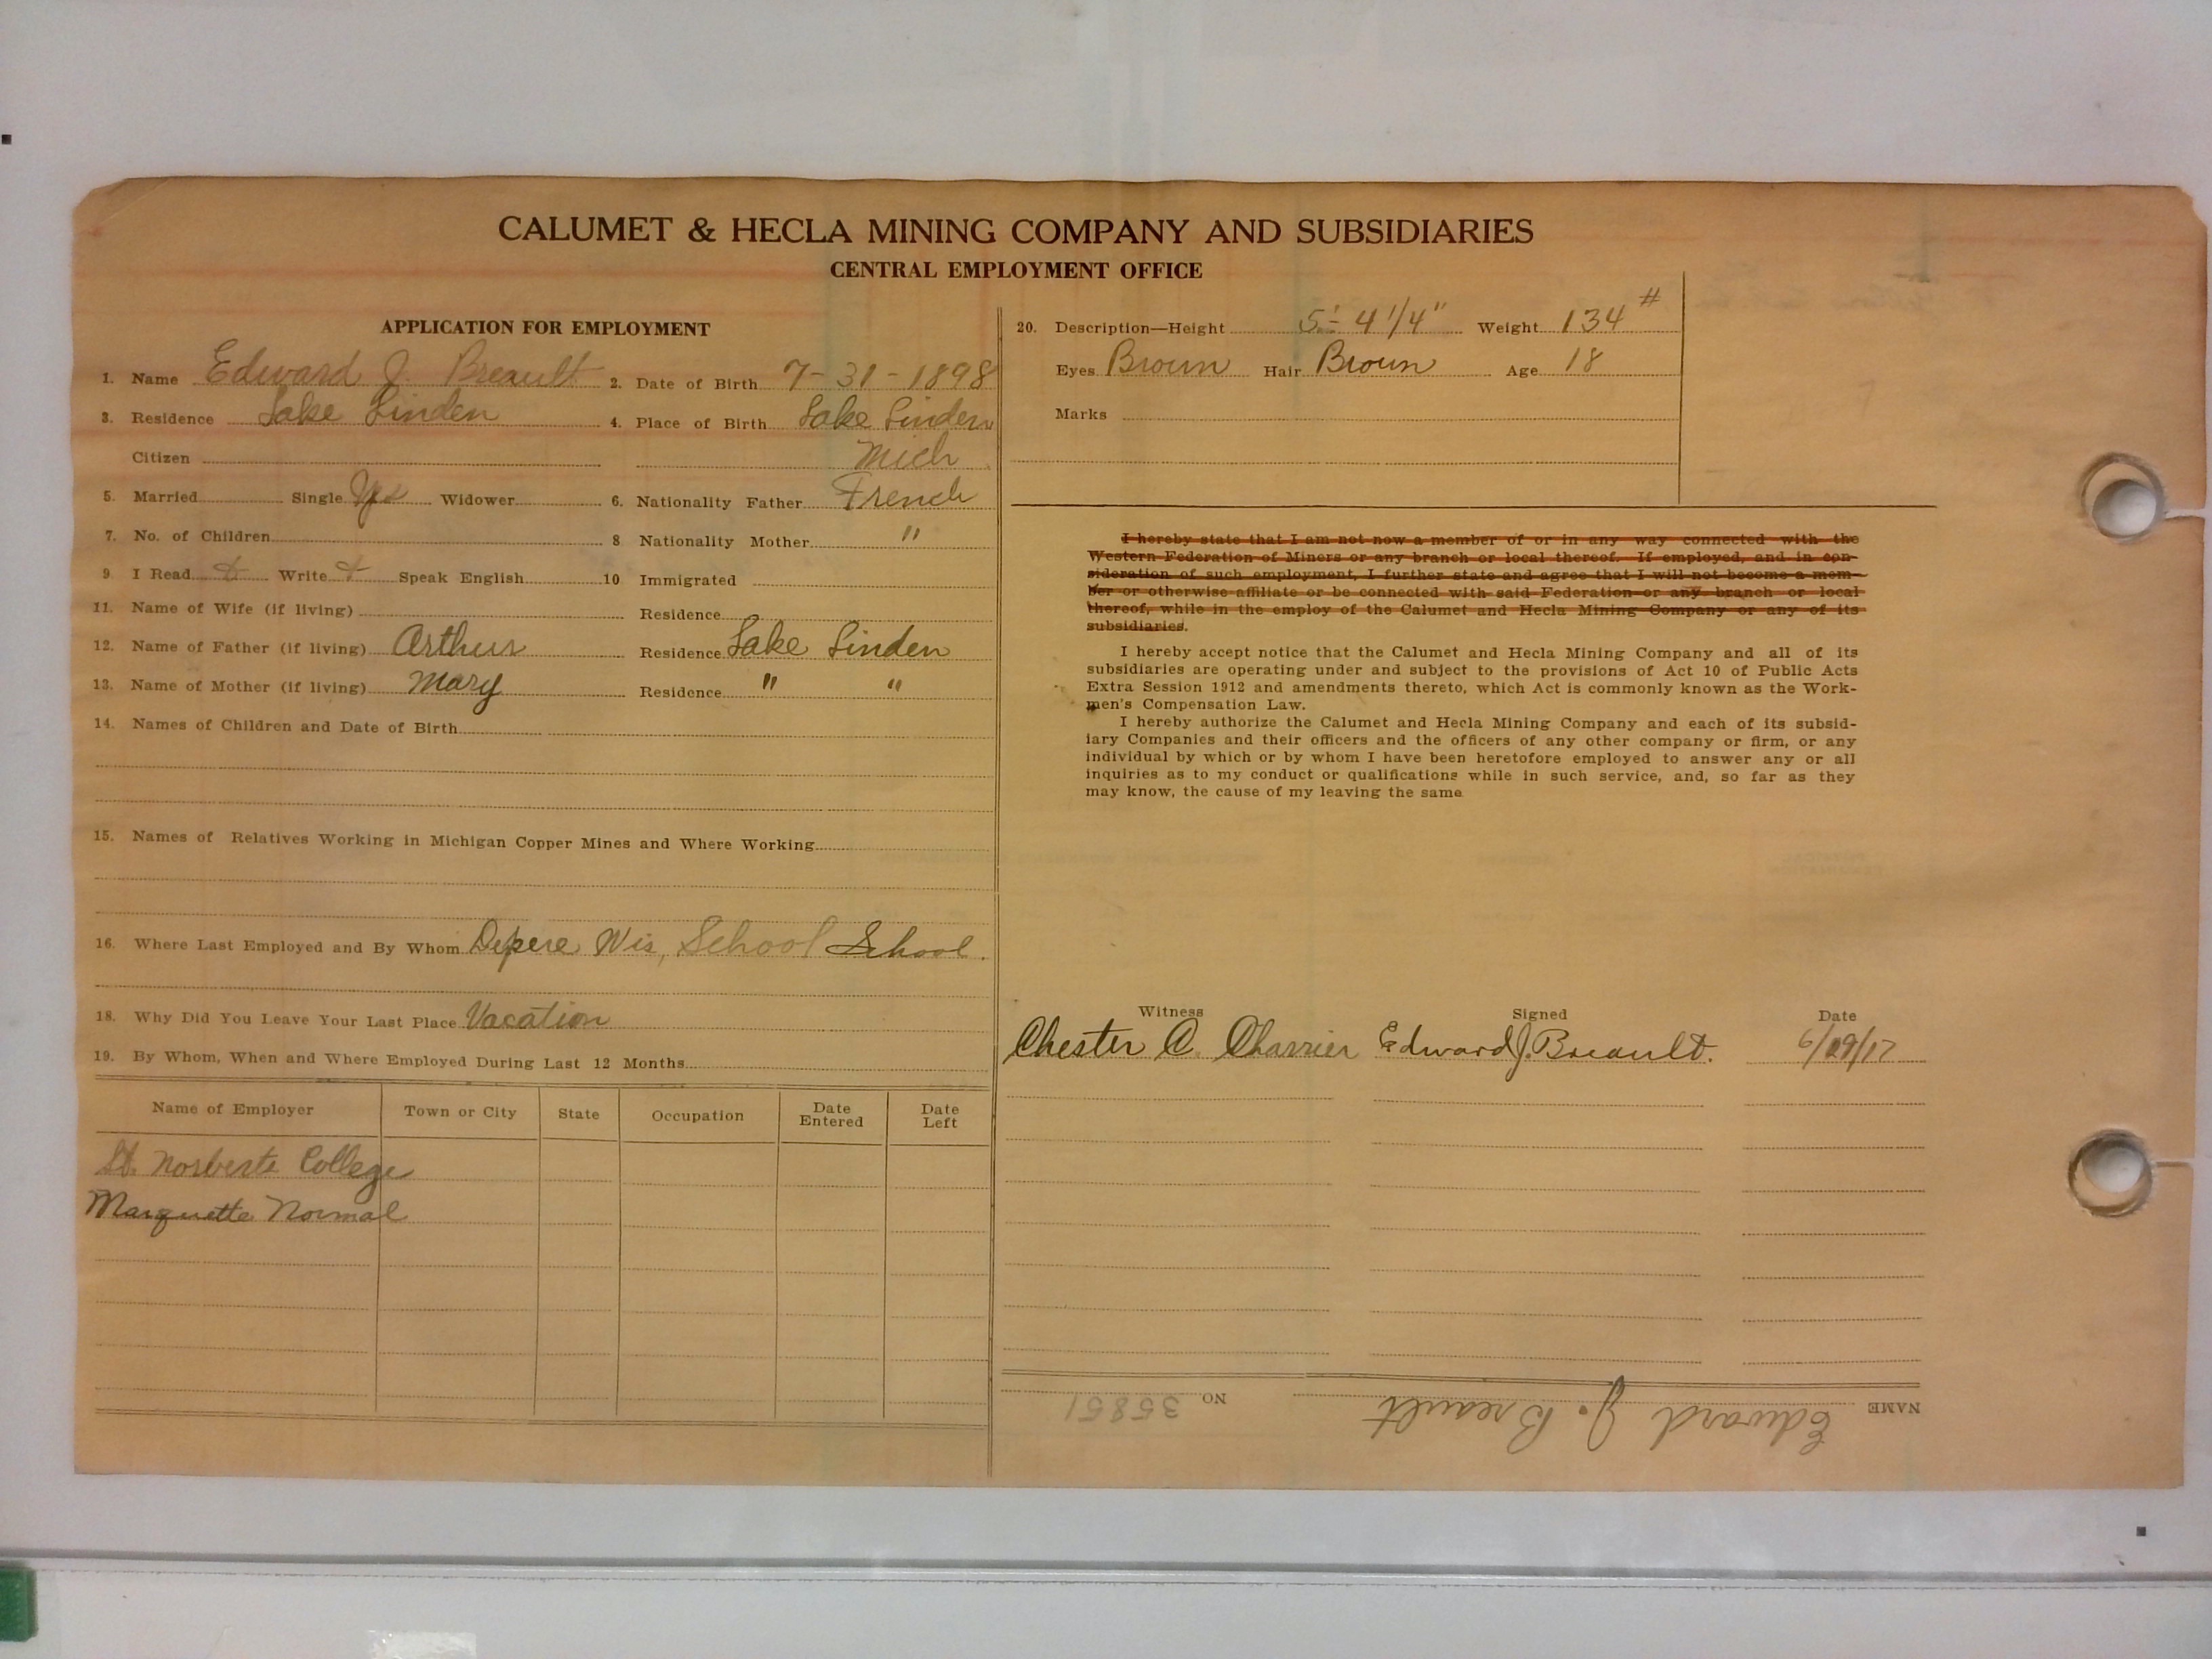 CALUMET & HECLA MINING COMPANY AND SUBSIDIARIES
CENTRAL EMPLOYMENT OFFICE
APPLICATION FOR EMPLOYMENT
1. Name Edward J. Breault 2. Date of Birth 7-31-1898
3. Residence Lake Linden 4. Place of Birth Lake Linden
Citizen Mich
5. Married Single Yes Widower 6. Nationality Father French
7. No. of Children 8 Nationality Mother "
9 I Read + Write + Speak English 10 Immigrated
11. Name of Wife (if living) Residence
12. Name of Father (if living) Arthur Residence Lake Linden
13. Name of Mother (if living) Mary Residence " "
14. Names of Children and Date of Birth
15. Names of Relatives Working in Michigan Copper Mines and Where Working
16. Where Last Employed and By Whom Depere Wis, School School.
18. Why Did You Leave Your Last Place Vacation
19. By Whom, When and Where Employed During Last 12 Months
Name of Employer Town or City State Occupation Date Entered Date Left
St. Norberts College
Marquette Normal
20. Description—Height 5'- 4 1/4" Weight 134 #
Eyes Broun Hair Broun Age 18
Marks
I hereby state that I am not now a member of or in any way connected with the
Western Federation of Miners or any branch or local thereof. If employed, and in con-
sideration of such employment, I further state and agree that I will not become a mem-
ber or otherwise affiliate or be connected with said Federation or any branch or local
thereof, while in the employ of the Calumet and Hecla Mining Company or any of its
subsidiaries.
I hereby accept notice that the Calumet and Hecla Mining Company and all of its
subsidiaries are operating under and subject to the provisions of Act 10 of Public Acts
Extra Session 1912 and amendments thereto, which Act is commonly known as the Work-
men's Compensation Law.
I hereby authorize the Calumet and Hecla Mining Company and each of its subsid-
iary Companies and their officers and the officers of any other company or firm, or any
individual by which or by whom I have been heretofore employed to answer any or all
inquiries as to my conduct or qualifications while in such service, and, so far as they
may know, the cause of my leaving the same
Witness Signed Date
Chester C. Charrier Edward J. Breault. 6/29/17
NAME Edward J. Breault NO 35851